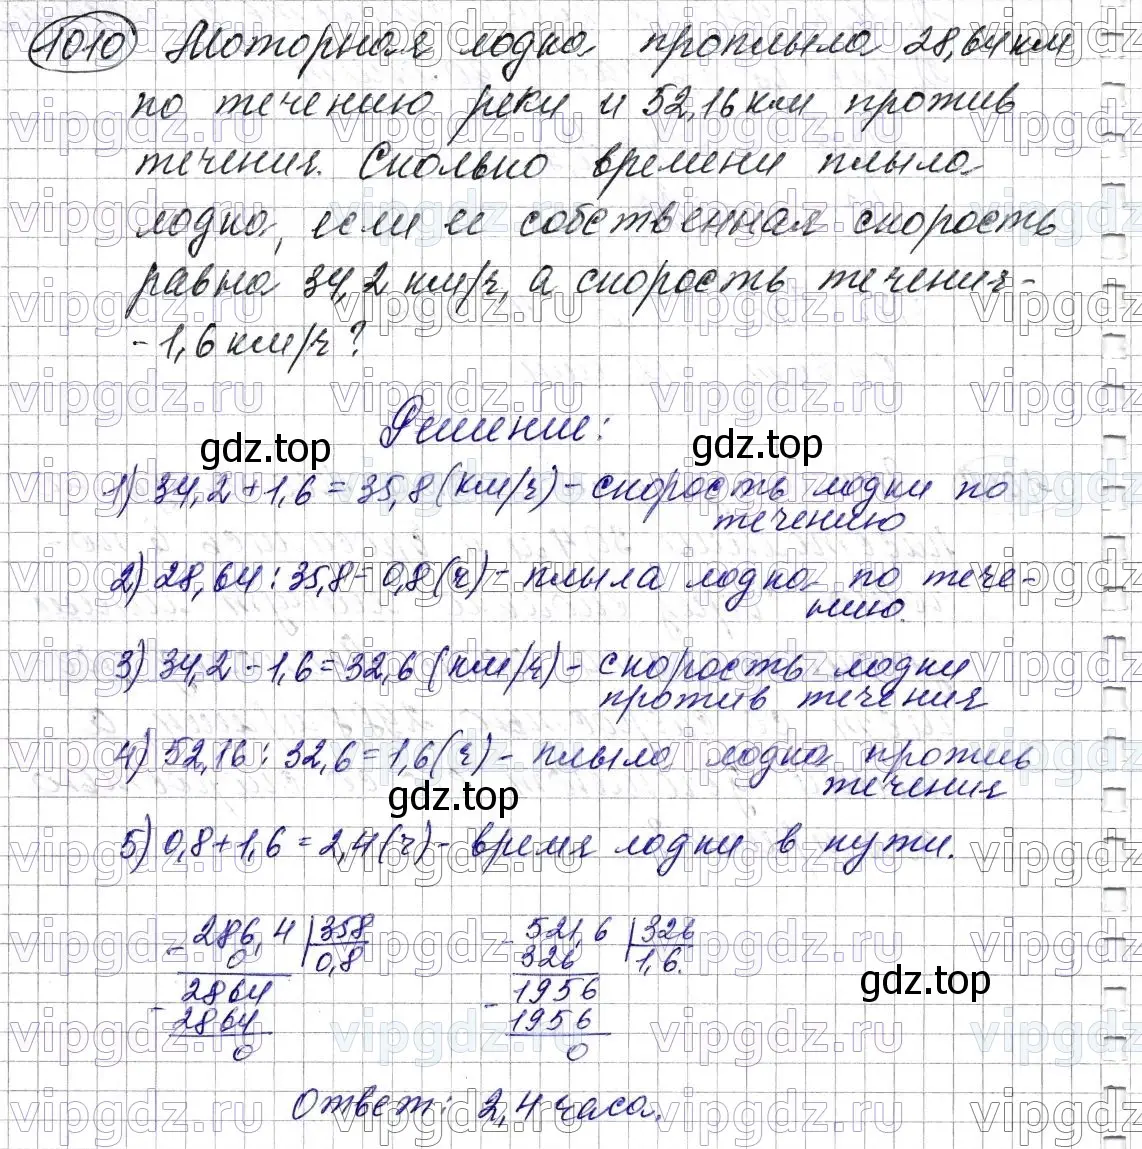 1010 Моторная лодка проплыла 28,64 км
по течению реки и 52,16 км против
течения. Сколько времени плыла
лодка, если её собственная скорость
равна 34,2 км/ч, а скорость течения -
- 1,6 км/ч?
Решение:
gdz.top
gdz.top
1) 34,2 + 1,6 = 35,8 (км/ч) - скорость лодки по
течению
2) 28,64 : 35,8 = 0,8 (ч) - плыла лодка по тече-
нию.
3) 34,2 - 1,6 = 32,6 (км/ч) - скорость лодки
против течения
4) 52,16 : 32,6 = 1,6 (ч) - плыла лодка против
течения
gdz.top
5) 0,8 + 1,6 = 2,4 (ч) - время лодки в пути.
- 286,4 | 358
0 | 0,8
- 2864
2864
0
- 521,6 | 326
326 | 1,6.
- 1956
1956
0
gdz.top
Ответ: 2,4 часа.
vipgdz.ru